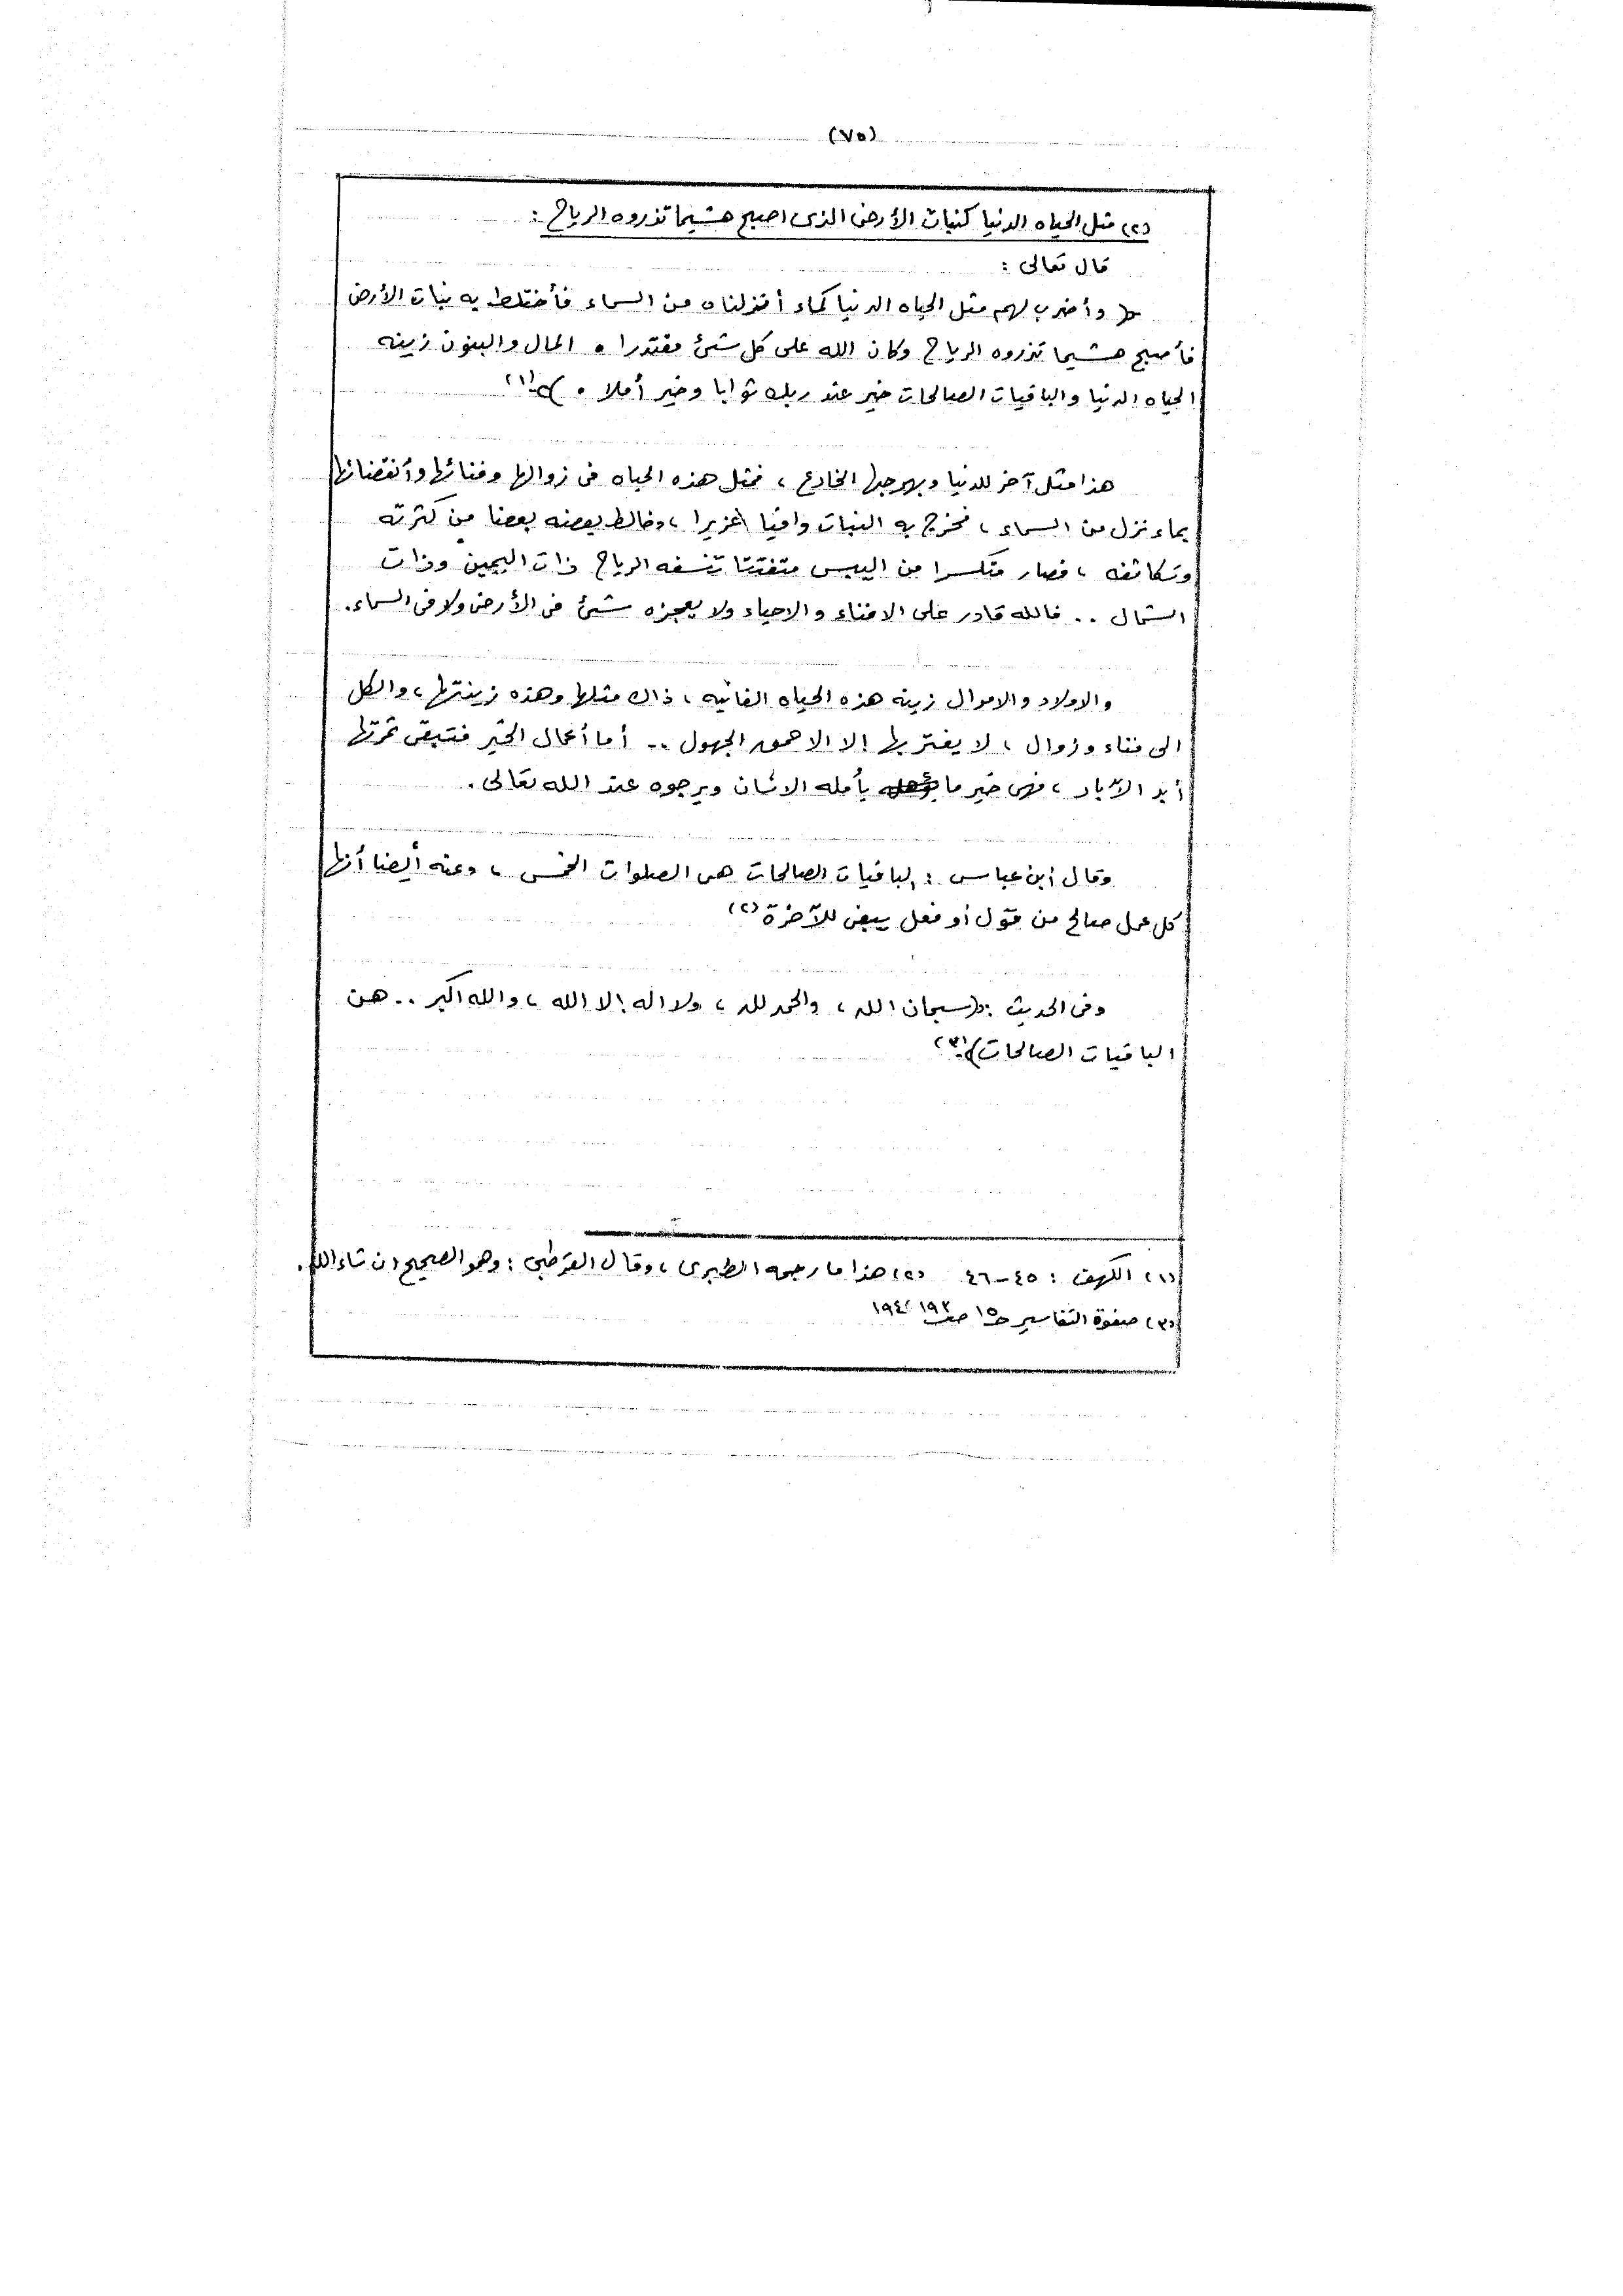 (٧٥)
(٢) مثل الحياه الدنيا كنبات الأرض الذى اصبح هشيما تذروه الرياح :
قال تعالى :
( وأضرب لهم مثل الحياه الدنيا كماء أنزلناه من السماء فأختلط به نبات الأرض
فأصبح هشيما تذروه الرياح وكان الله على كل شئ مقتدرا ٠ المال والبنون زينه
الحياه الدنيا والباقيات الصالحات خير عند ربك ثوابا وخير أملا ٠ ) (١)
هذا مثل آخر للدنيا وبهرجها الخادع ، فمثل هذه الحياه فى زوالها وفنائها وأنقضائها
بماء نزل من السماء ، فخرج به النبات وافيا غزيرا ، وخالط بعضه بعضا من كثرته
وتكاثفه ، فصار متكسرا من اليبس متفتتا تنسفه الرياح ذات اليمين وذات
الشمال .. فالله قادر على الافناء والاحياء ولا يعجزه شئ فى الأرض ولا فى السماء.
والاولاد والاموال زينه هذه الحياه الفانيه ، ذاك مثلها وهذه زينتها ، والكل
الى فناء وزوال ، لا يغتر بها إلا الاحمق الجهول .. أما أعمال الخير فتبقى ثمرتها
أبد الآباد ، فهى خير ما يأمله الانسان ويرجوه عند الله تعالى .
وقال أبن عباس : الباقيات الصالحات هى الصلوات الخمس ، وعنه أيضا أنها
كل عمل صالح من قول أو فعل يبقى للآخرة (٢)
وفى الحديث : (سبحان الله ، والحمد لله ، ولا اله إلا الله ، والله اكبر .. هن
الباقيات الصالحات) (٣)
(١) الكهف : ٤٥-٤٦ (٢) هذا ما رجحه الطبرى ، وقال القرطبى : وهو الصحيح ان شاء الله .
(٣) صفوة التفاسير حـ١٥ صـ١٩٣ ، ١٩٤